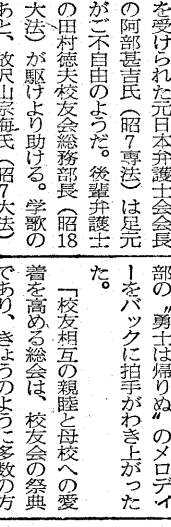 を受けられた元日本弁護士会会長
の阿部甚吉氏（昭７専法）は足元
がご不自由のようだ。後輩弁護士
の田村徳夫校友会総務部長（昭18
大法）が駆けより助ける。学歌の
あと、敢沢山宗海氏（昭７大法）
部の〝勇士は帰りぬ〟のメロディ
ーをバックに拍手がわき上がった
た。
「校友相互の親睦と母校への愛
着を高める総会は、校友会の祭典
であり、きょうのように多数の方